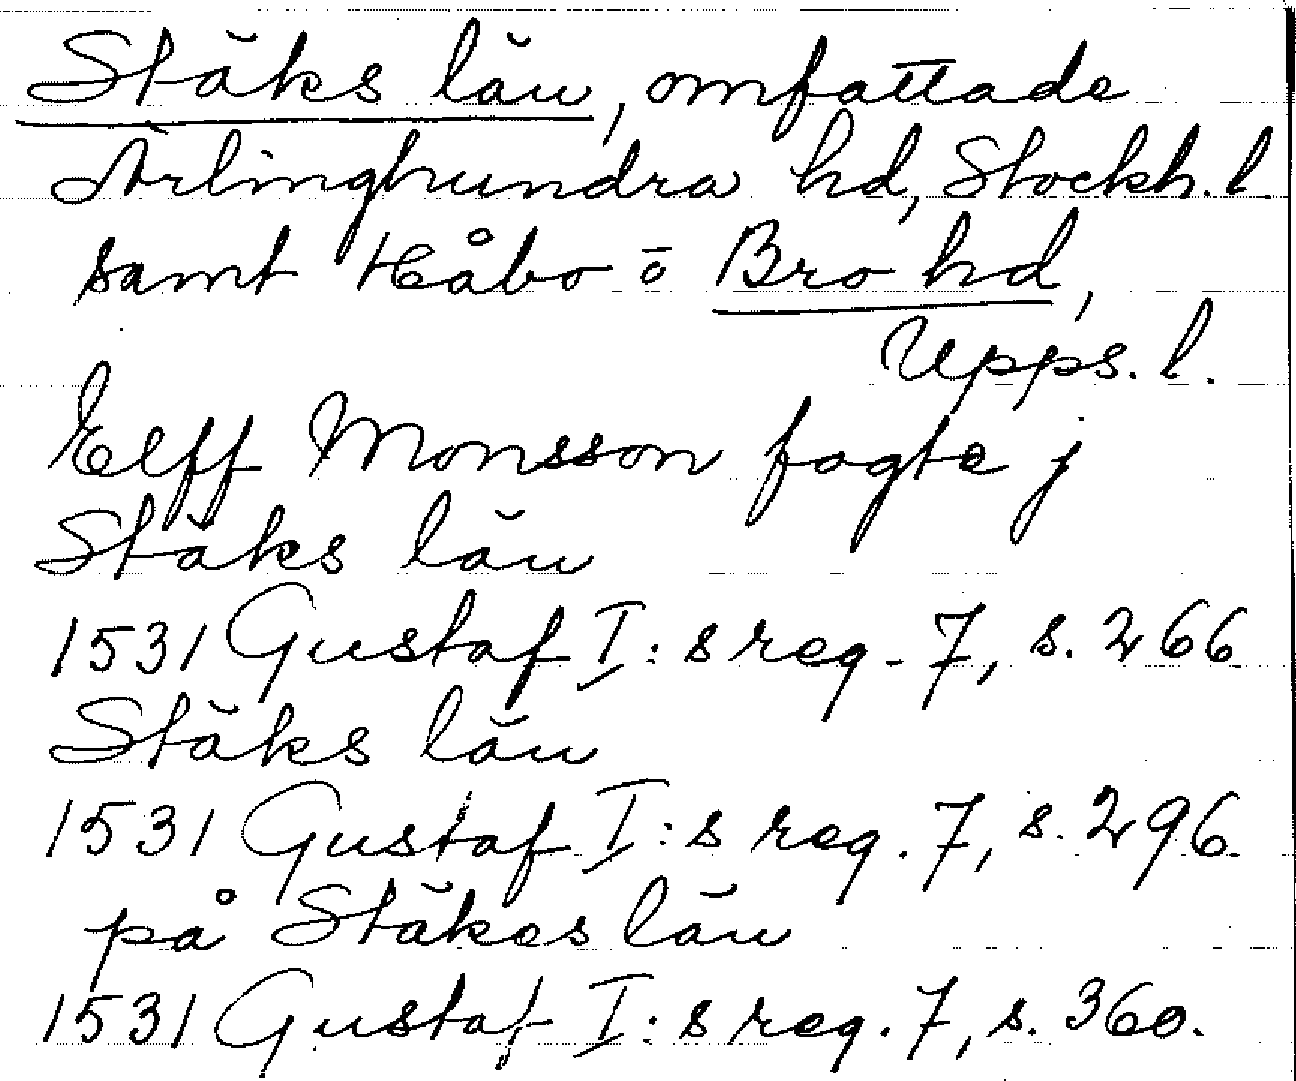 Stäks län, omfattade
Ärlinghundra hd, Stockh. l
samt Håbo o Bro hd,
Upps. l.
Elff Monsson fogte j
Stäks län
1531 Gustaf I:s reg. 7, s. 266
Stäks län
1531 Gustaf I:s reg. 7, s. 296.
på Stäkes län
1531 Gustaf I:s reg. 7, s. 360.